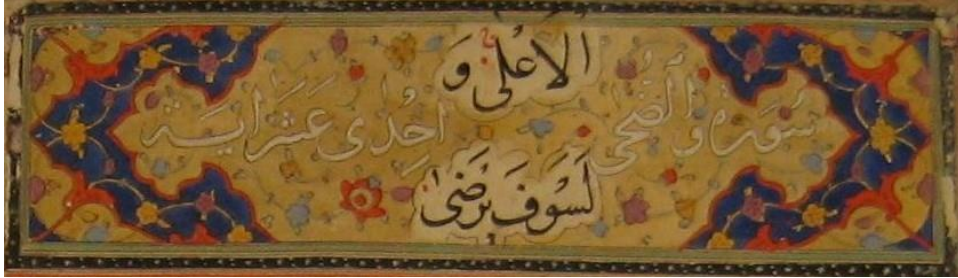 الاَعْلى وَ
سُورَة وَالضُّحى اِحْدى عَشَرَ ايَة
لَسَوْفَ يَرْضى